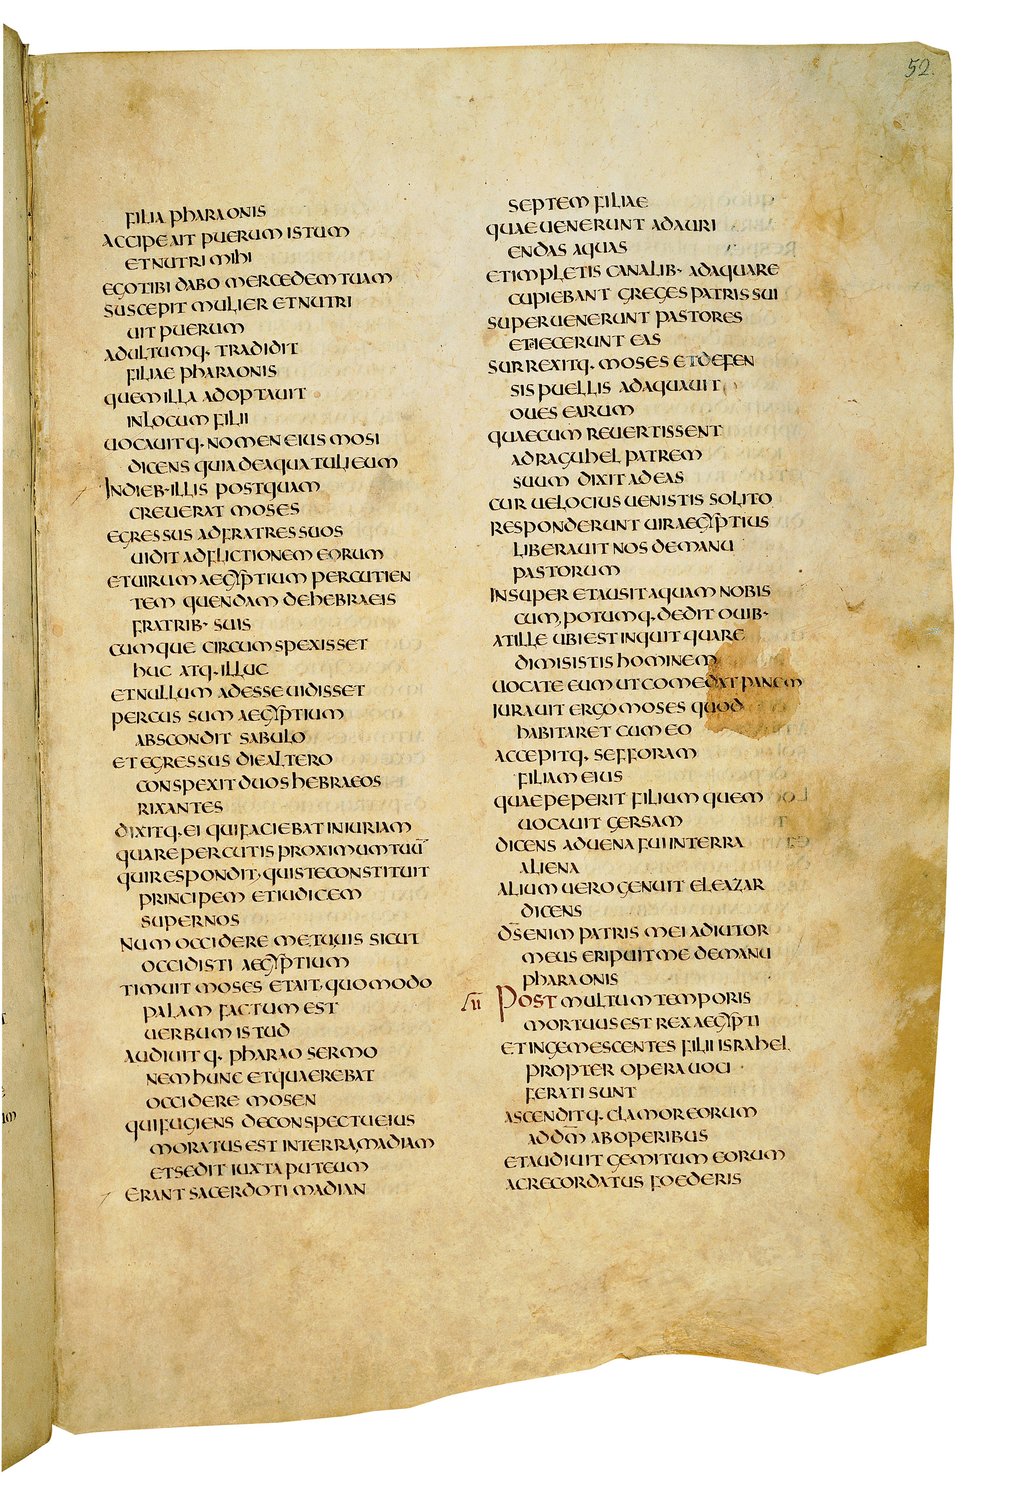 52.
FILIA PHARAONIS
ACCIPE AIT PUERUM ISTUM
ET NUTRI MIHI
EGO TIBI DABO MERCEDEM TUAM
SUSCEPIT MULIER ET NUTRI
UIT PUERUM
ADULTUMQ· TRADIDIT
FILIAE PHARAONIS
QUEM ILLA ADOPTAUIT
IN LOCUM FILII
UOCAUITQ· NOMEN EIUS MOSI
DICENS QUIA DE AQUA TULI EUM
IN DIEB· ILLIS POSTQUAM
CREUERAT MOSES
EGRESSUS AD FRATRES SUOS
UIDIT ADFLICTIONEM EORUM
ET UIRUM AEGYPTIUM PERCUTIEN
TEM QUENDAM DE HEBRAEIS
FRATRIB· SUIS
CUMQUE CIRCUMSPEXISSET
HUC ATQ· ILLUC
ET NULLUM ADESSE UIDISSET
PERCUSSUM AEGYPTIUM
ABSCONDIT SABULO
ET EGRESSUS DIE ALTERO
CONSPEXIT DUOS HEBRAEOS
RIXANTES
DIXITQ· EI QUI FACIEBAT INIURIAM
QUARE PERCUTIS PROXIMUM TUŪ
QUI RESPONDIT· QUIS TE CONSTITUIT
PRINCIPEM ET IUDICEM
SUPER NOS
NUM OCCIDERE ME TU UIS SICUT
OCCIDISTI AEGYPTIUM
TIMUIT MOSES ET AIT· QUOMODO
PALAM FACTUM EST
UERBUM ISTUD
AUDIUITQ· PHARAO SERMO
NEM HUNC ET QUAEREBAT
OCCIDERE MOSEN
QUI FUGIENS DE CONSPECTU EIUS
MORATUS EST IN TERRA MADIAM
ET SEDIT IUXTA PUTEUM
ERANT SACERDOTI MADIAN
SEPTEM FILIAE
QUAE UENERUNT AD AURI
ENDAS AQUAS
ET IMPLETIS CANALIB· ADAQUARE
CUPIEBANT GREGES PATRIS SUI
SUPERUENERUNT PASTORES
ET IECERUNT EAS
SURREXITQ· MOSES ET DEFEN
SIS PUELLIS ADAQUAUIT
OUES EARUM
QUAE CUM REUERTISSENT
AD RAGUHEL PATREM
SUUM DIXIT AD EAS
CUR UELOCIUS UENISTIS SOLITO
RESPONDERUNT UIR AEGYPTIUS
LIBERAUIT NOS DE MANU
PASTORUM
INSUPER ET AUSIT AQUAM NOBIS
CUM, POTUMQ· DEDIT OUIB·
AT ILLE UBI EST INQUIT QUARE
DIMISISTIS HOMINEM
UOCATE EUM UT COMEDAT PANEM
IURAUIT ERGO MOSES QUOD
HABITARET CUM EO
ACCEPITQ· SEFFORAM
FILIAM EIUS
QUAE PEPERIT FILIUM QUEM
UOCAUIT GERSAM
DICENS ADUENA FUI IN TERRA
ALIENA
ALIUM UERO GENUIT ELEAZAR
DICENS
D̅S ENIM PATRIS MEI ADIUTOR
MEUS ERIPUIT ME DE MANU
PHARAONIS
II POST MULTUM TEMPORIS
MORTUUS EST REX AEGYPTI
ET INGEMESCENTES FILII ISRAHEL
PROPTER OPERA UOCI
FERATI SUNT
ASCENDITQ· CLAMOR EORUM
AD D̅M AB OPERIBUS
ET AUDIUIT GEMITUM EORUM
AC RECORDATUS FOEDERIS